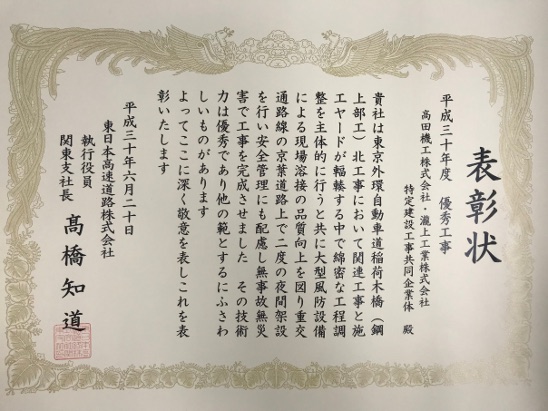 表彰状
平成三十年度　優秀工事
高田機工株式会社・瀧上工業株式会社
特定建設工事共同企業体　殿
貴社は東京外環自動車道稲荷木橋（鋼
上部工）北工事において関連工事と施
工ヤードが輻輳する中で綿密な工程調
整を主体的に行うと共に大型風防設備
による現場溶接の品質向上を図り重交
通路線の京葉道路上で二度の夜間架設
を行い安全管理にも配慮し無事故無災
害で工事を完成させました　その技術
力は優秀であり他の範とするにふさわ
しいものがあります
よってここに深く敬意を表しこれを表
彰いたします
平成三十年六月二十日
東日本高速道路株式会社
執行役員
関東支社長　髙橋知道